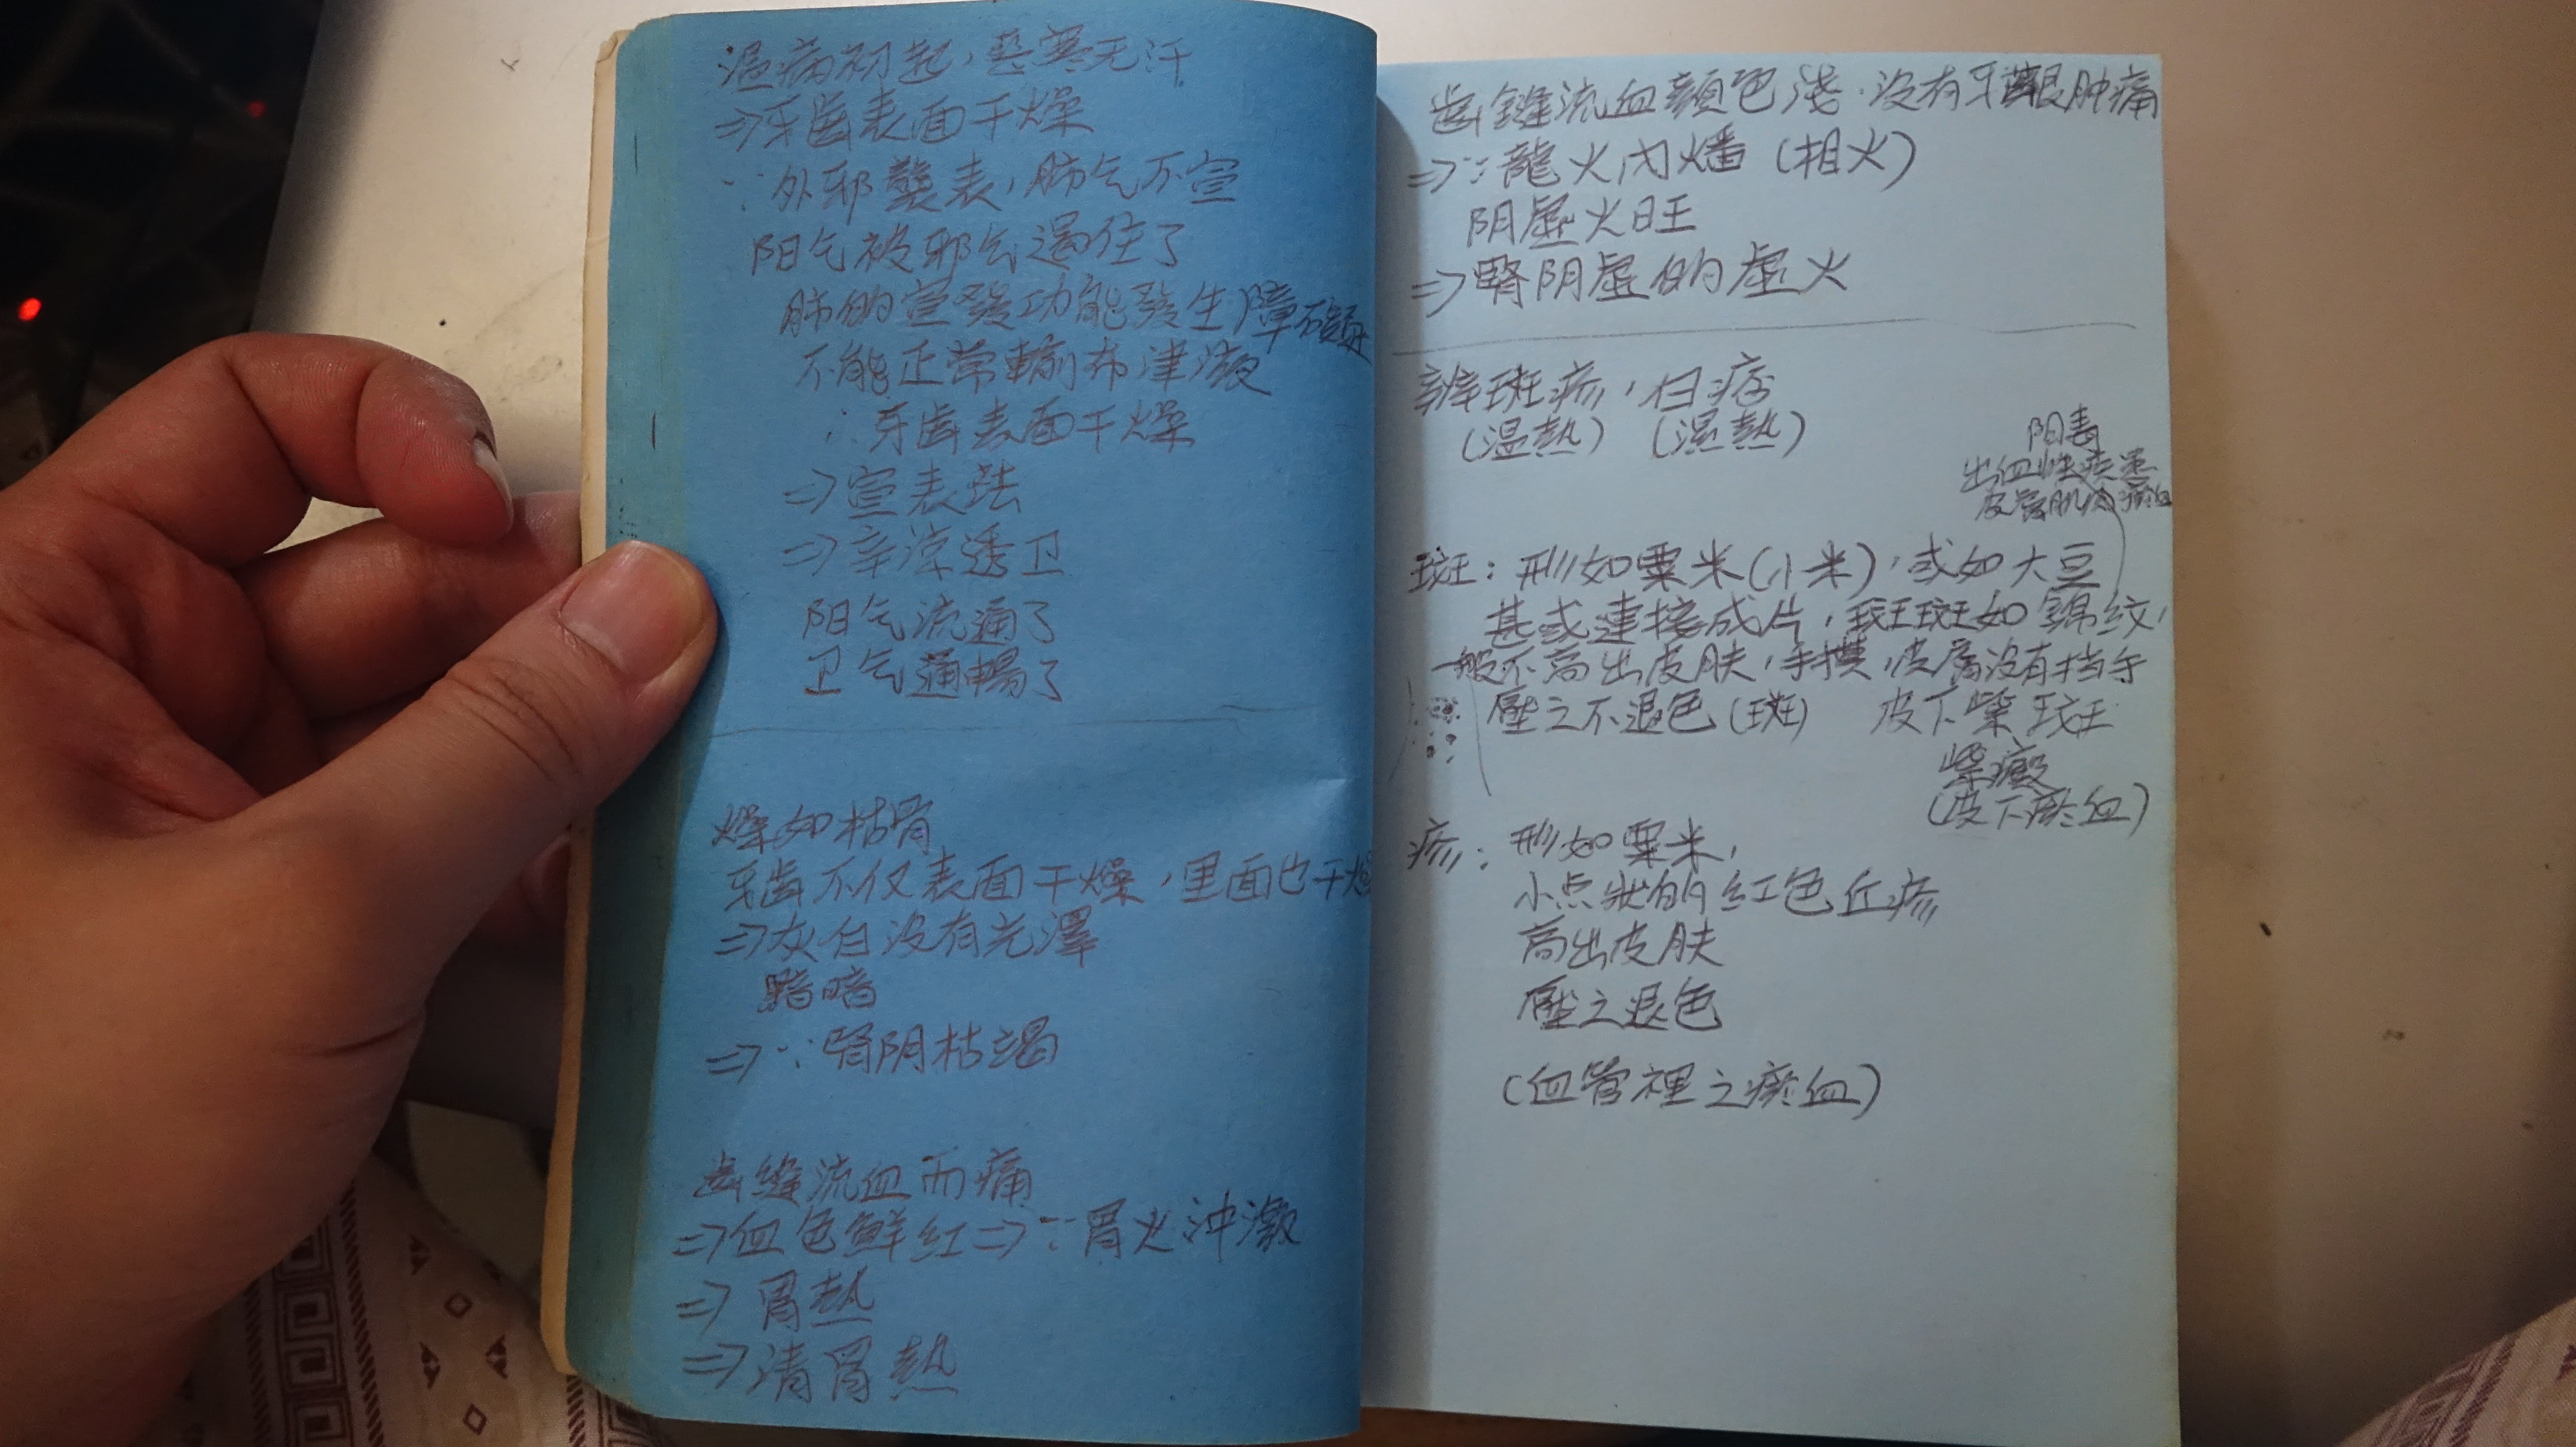 温病初起，恶寒无汗
⇒牙齒表面干燥
∵外邪襲表，肺气不宣
阳气被邪气遏住了
肺的宣發功能發生障礙
不能正常輸布津液
∴牙齒表面干燥
⇒宣表法
⇒辛凉透卫
阳气流通了
卫气通暢了
燥如枯骨
牙齒不仅表面干燥，里面也干燥
⇒灰白没有光澤
黯暗
⇒∵腎阴枯竭
齒缝流血而痛
⇒血色鲜红⇒∵胃火冲激
⇒胃热
⇒清胃热
齒縫流血顏色淺．没有牙齦肿痛
⇒∵龍火内燔（相火）
阴虚火旺
⇒腎阴虚的虚火
辨斑疹，白㾦
（温热）（湿热）
阳毒
出血性疾患
皮膚肌肉瘀血
斑：形如粟米（小米），或如大豆
甚或連接成片，斑斑如錦紋，
一般不高出皮肤，手摸，皮膚没有挡手
壓之不退色（斑） 皮下紫斑
紫癜
（皮下瘀血）
疹：形如粟米，
小点狀的红色丘疹
高出皮肤
壓之退色
（血管裡之瘀血）